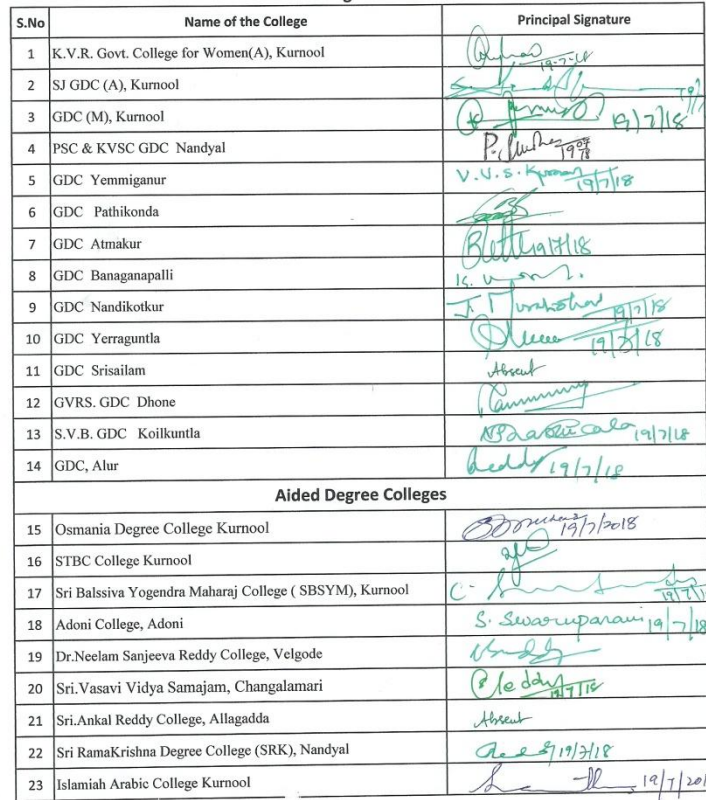 S.No Name of the College Principal Signature
1 K.V.R. Govt. College for Women(A), Kurnool 19-7-18
2 SJ GDC (A), Kurnool
3 GDC (M), Kurnool 19/7/18
4 PSC & KVSC GDC Nandyal
5 GDC Yemmiganur V.V.S. Kumar 19/7/18
6 GDC Pathikonda
7 GDC Atmakur 19/7/18
8 GDC Banaganapalli
9 GDC Nandikotkur 19/7/18
10 GDC Yerraguntla 19/7/18
11 GDC Srisailam Absent
12 GVRS. GDC Dhone
13 S.V.B. GDC Koilkuntla 19/7/18
14 GDC, Alur Reddy 19/7/18
Aided Degree Colleges
15 Osmania Degree College Kurnool 19/7/2018
16 STBC College Kurnool
17 Sri Balssiva Yogendra Maharaj College ( SBSYM), Kurnool
18 Adoni College, Adoni S. Swaruparani 19/7/18
19 Dr.Neelam Sanjeeva Reddy College, Velgode
20 Sri.Vasavi Vidya Samajam, Changalamari 19/7/18
21 Sri.Ankal Reddy College, Allagadda Absent
22 Sri RamaKrishna Degree College (SRK), Nandyal 19/7/18
23 Islamiah Arabic College Kurnool 19/7/201